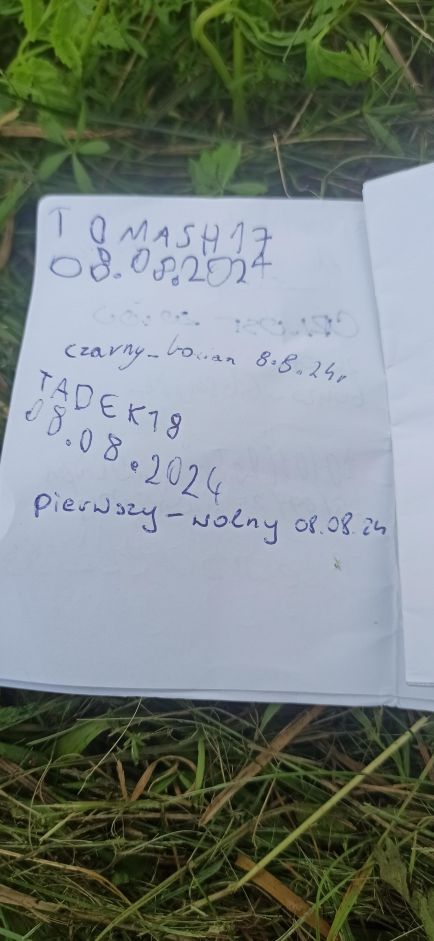 TOMASH17
08.08.2024
czarny_bocian 8.8.24r
TADEK18
08.08.2024
pierwszy-wolny 08.08.24